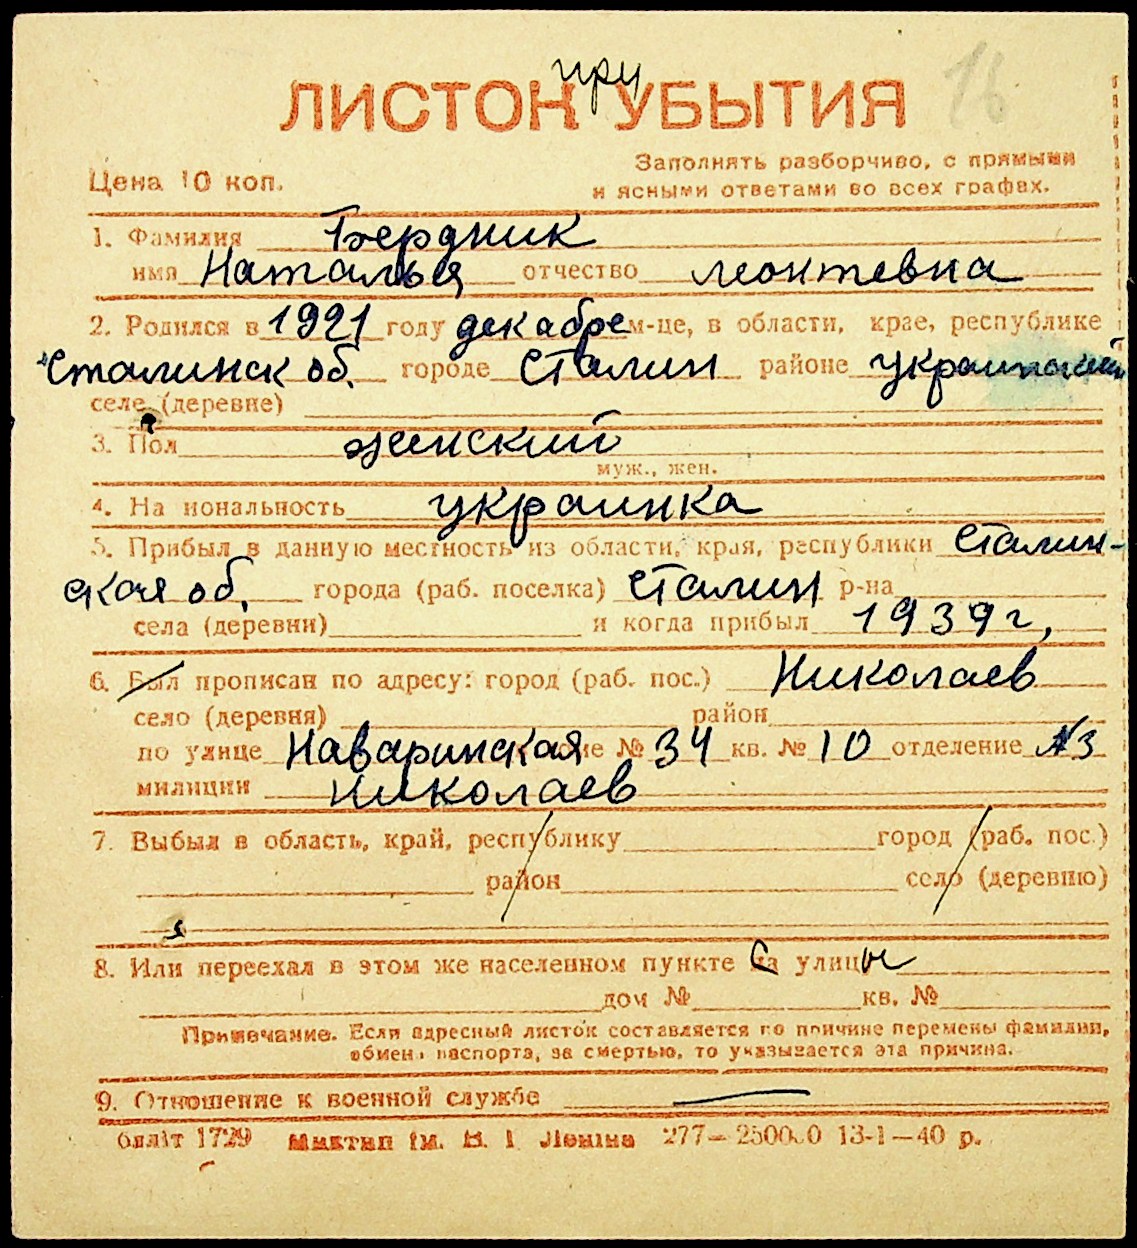 при
16
ЛИСТОК УБЫТИЯ
Заполнять разборчиво, с прямыми
Цена 10 коп.
и ясными ответами во всех графах.
1. Фамилия Бердник
имя Наталья отчество леонтевна
2. Родился в 1921 году декабре м-це, в области, крае, республике
Сталинск об. городе Сталин районе украинский
селе (деревне)
3. Пол женский
муж., жен.
4. На иональность украинка
5. Прибыл в данную местность из области, края, республики Сталин-
ская об. города (раб. поселка) Сталин р-на
села (деревни) и когда прибыл 1939 г,
6. Был прописан по адресу: город (раб. пос.) Николаев
село (деревня) район
по улице Наваринская № 34 кв. № 10 отделение №3
милиции Николаев
7. Выбыл в область, край, республику город (раб. пос.)
район село (деревню)
8. Или переехал в этом же населенном пункте с улицы
дом № кв. №
Примечание. Если адресный листок составляется по причине перемены фамилии,
обмена паспорта, за смертью, то указывается эта причина.
9. Отношение к военной службе —
блліт 1729 Миктип ім. В. І. Леніна 277— 13-1—40 р.